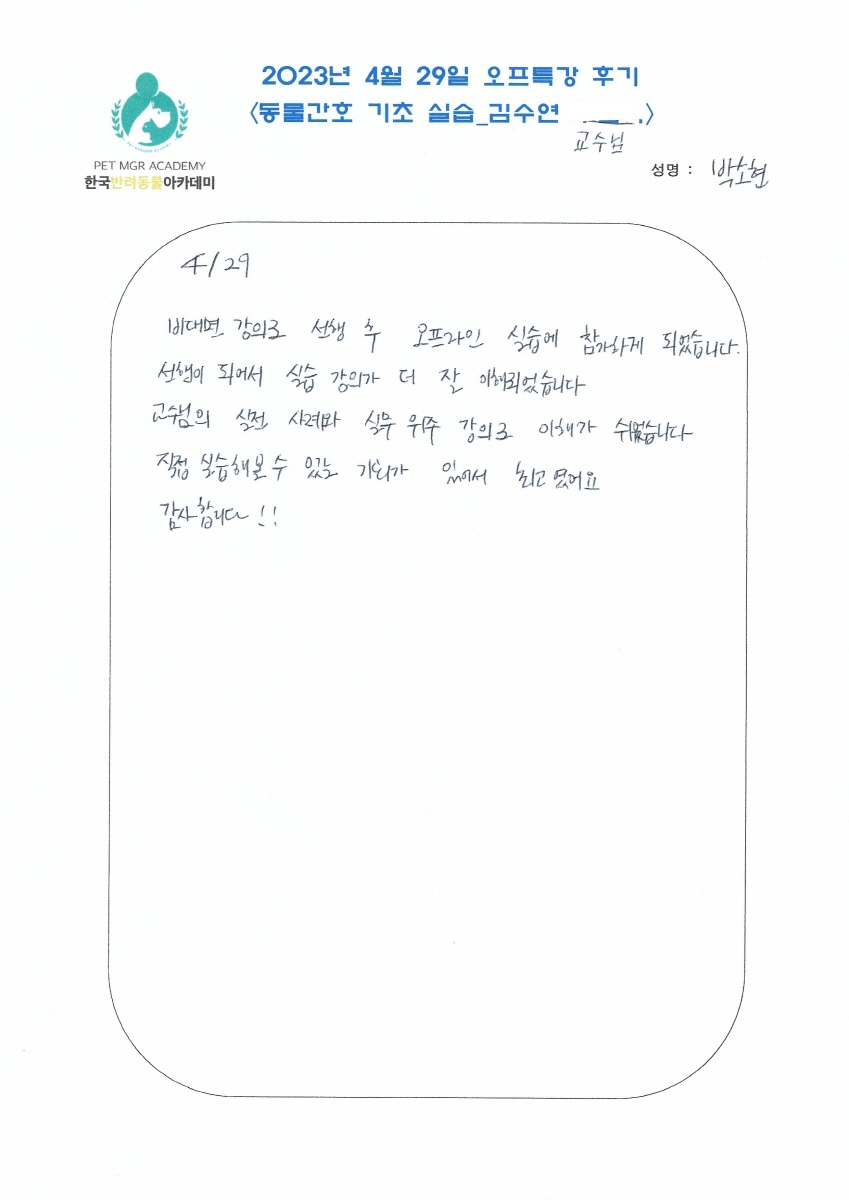 2023년 4월 29일 오프특강 후기
<동물간호 기초 실습_김수연 .>
교수님
PET MGR ACADEMY
한국반려동물아카데미
성명 : 박소현
4/29
비대면 강의로 선행 후 오프라인 실습에 참가하게 되었습니다.
선행이 되어서 실습 강의가 더 잘 이해되었습니다
교수님의 실전 사례와 실무 위주 강의로 이해가 쉬웠습니다
직접 실습해볼 수 있는 기회가 있어서 최고였어요
감사합니다 !!